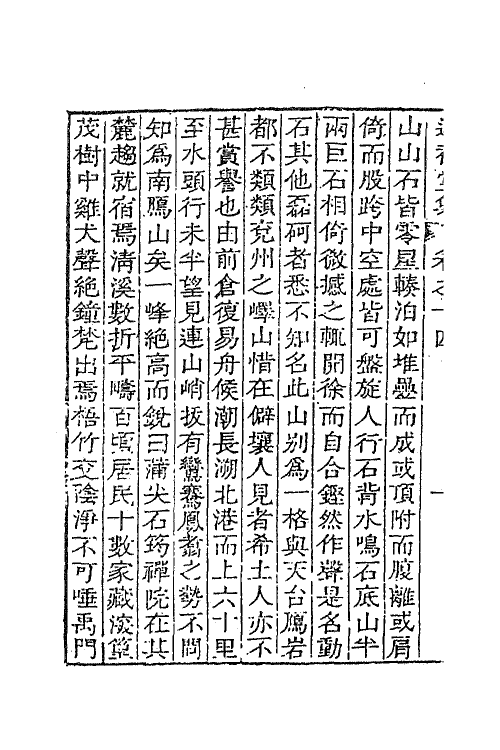 卷之十四
一
山山石皆零星輳泊如堆壘而成或頂附而腹離或肩
倚而股跨中空處皆可盤旋人行石背水鳴石底山半
兩巨石相倚微撼之輒開徐而自合鏗然作聲是名動
石其他磊砢者悉不知名此山別為一格與天台鴈岩
都不類類兗州之嶧山惜在僻壤人見者希土人亦不
甚賞譽也由前倉復易舟候潮長溯北港而上六十里
至水頭行未半望見連山峭拔有鸞騫鳳翥之勢不問
知為南鴈山矣一峰絶高而銳曰蒲尖石筠禪院在其
麓趨就宿焉淸溪數折平疇百頃居民十數家藏深篁
茂樹中雞犬聲絶鐘梵出焉梧竹交陰淨不可唾禹門